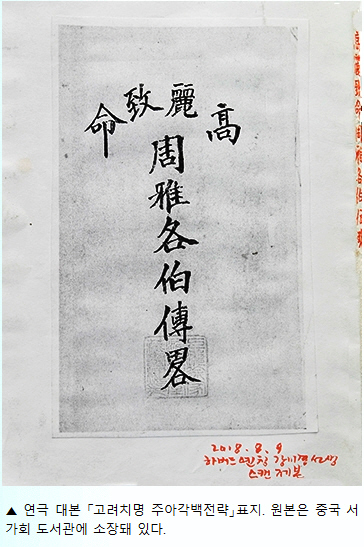 高麗致命
周雅各伯傳畧
2018. 8. 9
하버드 옌칭 강미경 선생
스캔 제본
▲ 연극 대본 「고려치명 주아각백전략」표지. 원본은 중국 서
가회 도서관에 소장돼 있다.